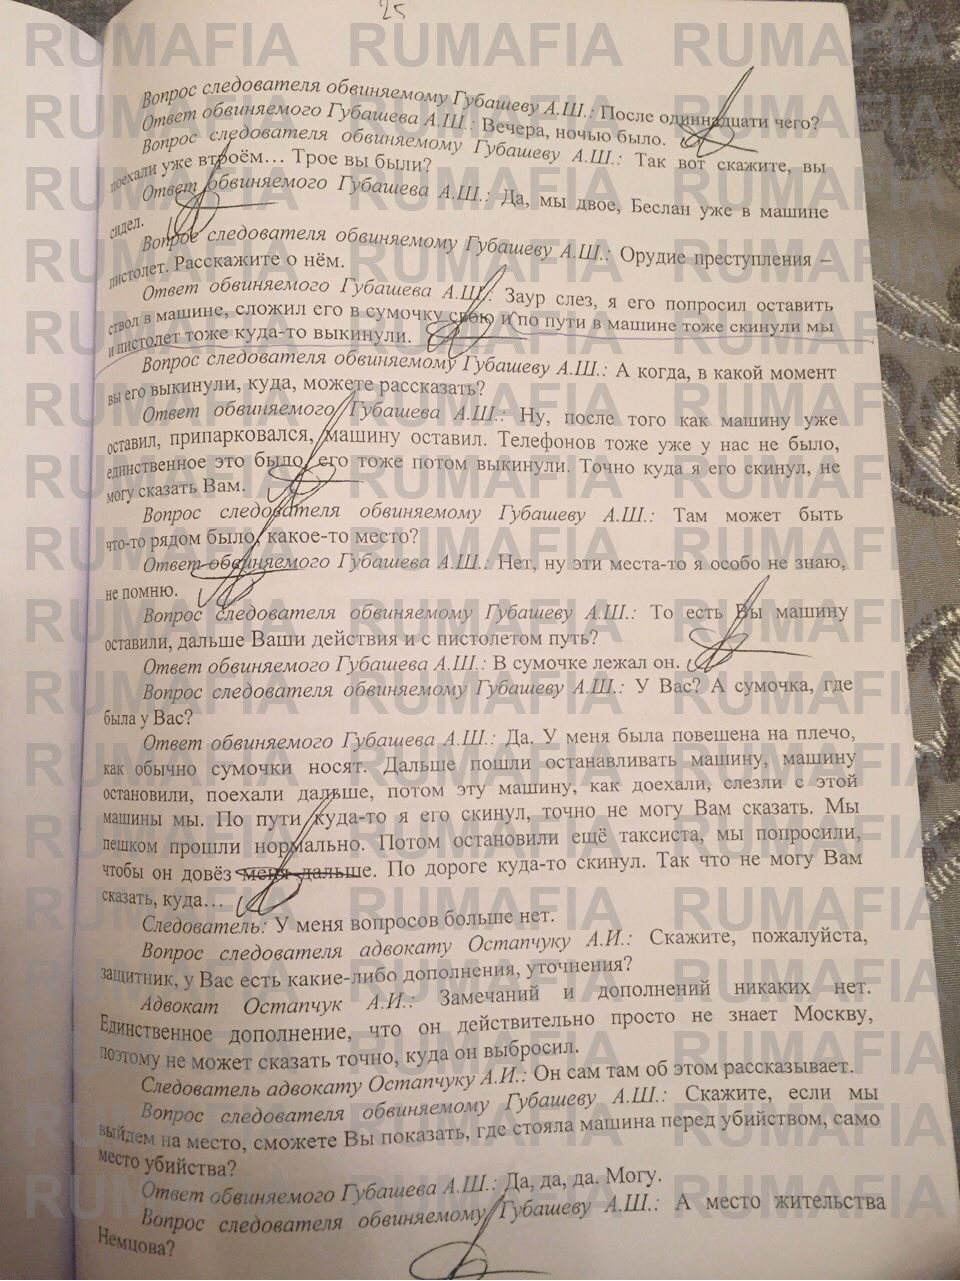 25
Вопрос следователя обвиняемому Губашеву А.Ш.: После одиннадцати чего?
Ответ обвиняемого Губашева А.Ш.: Вечера, ночью было.
Вопрос следователя обвиняемому Губашеву А.Ш.: Так вот скажите, вы
поехали уже втроём… Трое вы были?
Ответ обвиняемого Губашева А.Ш.: Да, мы двое, Беслан уже в машине
сидел.
Вопрос следователя обвиняемому Губашеву А.Ш.: Орудие преступления –
пистолет. Расскажите о нём.
Ответ обвиняемого Губашева А.Ш.: Заур слез, я его попросил оставить
ствол в машине, сложил его в сумочку свою и по пути в машине тоже скинули мы
и пистолет тоже куда-то выкинули.
Вопрос следователя обвиняемому Губашеву А.Ш.: А когда, в какой момент
вы его выкинули, куда, можете рассказать?
Ответ обвиняемого Губашева А.Ш.: Ну, после того как машину уже
оставил, припарковался, машину оставил. Телефонов тоже уже у нас не было,
единственное это было, его тоже потом выкинули. Точно куда я его скинул, не
могу сказать Вам.
Вопрос следователя обвиняемому Губашеву А.Ш.: Там может быть
что-то рядом было, какое-то место?
Ответ обвиняемого Губашева А.Ш.: Нет, ну эти места-то я особо не знаю,
не помню.
Вопрос следователя обвиняемому Губашеву А.Ш.: То есть Вы машину
оставили, дальше Ваши действия и с пистолетом путь?
Ответ обвиняемого Губашева А.Ш.: В сумочке лежал он.
Вопрос следователя обвиняемому Губашеву А.Ш.: У Вас? А сумочка, где
была у Вас?
Ответ обвиняемого Губашева А.Ш.: Да. У меня была повешена на плечо,
как обычно сумочки носят. Дальше пошли останавливать машину, машину
остановили, поехали дальше, потом эту машину, как доехали, слезли с этой
машины мы. По пути куда-то я его скинул, точно не могу Вам сказать. Мы
пешком прошли нормально. Потом остановили ещё таксиста, мы попросили,
чтобы он довёз меня дальше. По дороге куда-то скинул. Так что не могу Вам
сказать, куда…
Следователь: У меня вопросов больше нет.
Вопрос следователя адвокату Остапчуку А.И.: Скажите, пожалуйста,
защитник, у Вас есть какие-либо дополнения, уточнения?
Адвокат Остапчук А.И.: Замечаний и дополнений никаких нет.
Единственное дополнение, что он действительно просто не знает Москву,
поэтому не может сказать точно, куда он выбросил.
Следователь адвокату Остапчуку А.И.: Он сам там об этом рассказывает.
Вопрос следователя обвиняемому Губашеву А.Ш.: Скажите, если мы
выйдем на место, сможете Вы показать, где стояла машина перед убийством, само
место убийства?
Ответ обвиняемого Губашева А.Ш.: Да, да, да. Могу.
Вопрос следователя обвиняемому Губашеву А.Ш.: А место жительства
Немцова?